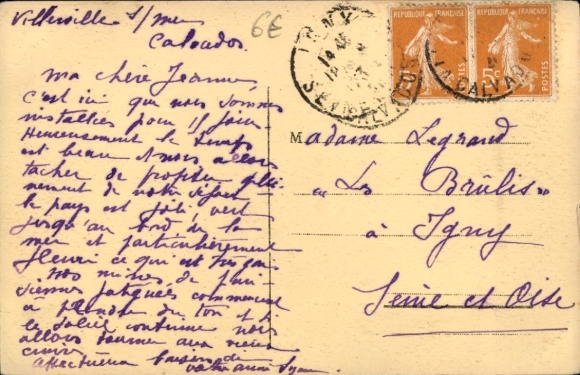 Villerville s/mer
Calvados.
6€
ma chère Jeanne,
c'est ici que nous sommes
installées pour 15 jours.
Heureusement le temps
est beau & nous allons
tacher de profiter pleinement
de notre séjour
le pays est joli, vert
jusqu'au bord de la
mer et particulièrement
fleuri ce qui est très
nos mines de
commencent
à prendre du ton et si
le soleil continue nous
allons tourner aux vieux
cuivre
affectueux baisers de
votre amie
RÉPUBLIQUE FRANÇAISE
POSTES
RÉPUBLIQUE FRANÇAISE
POSTES
IGNY
CALVADOS
M
Madame Legrand
"Les Brûlis"
à Igny
Seine et Oise